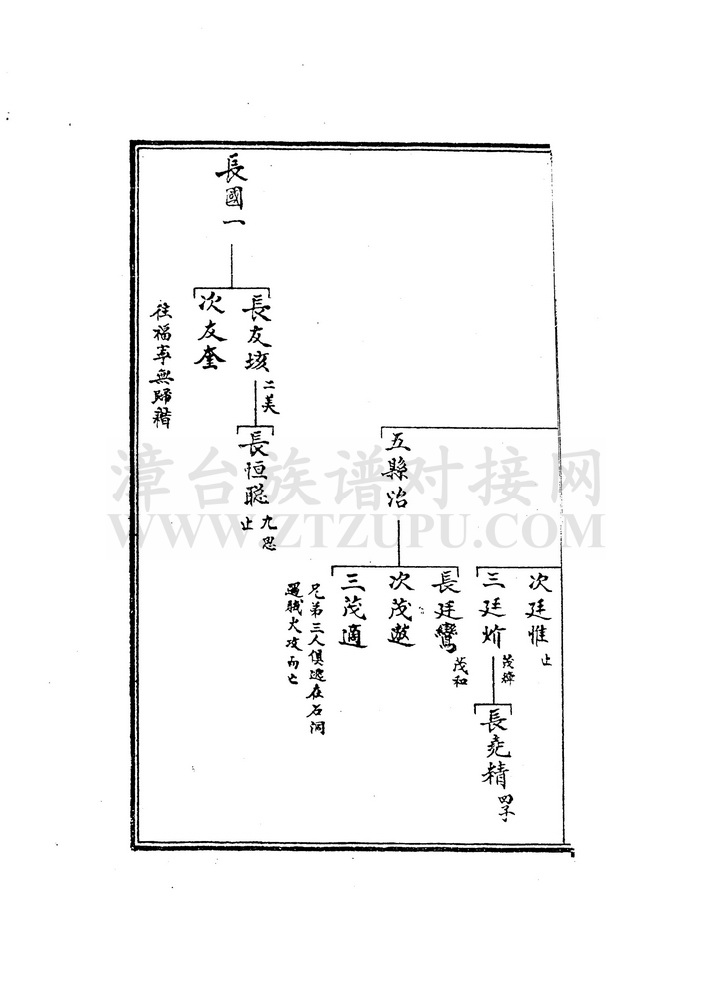 次廷惟 止
三廷炌 茂燁
長堯精 四子
五縣治
長廷鸞 茂和
次茂遨
三茂適
兄弟三人俱逃在石洞
遇賊火攻而亡
長國一
長友垓 二美
長恒聪 九思 止
次友奎
往福寧無歸籍
漳台族谱对接网
WWW.ZTZUPU.COM